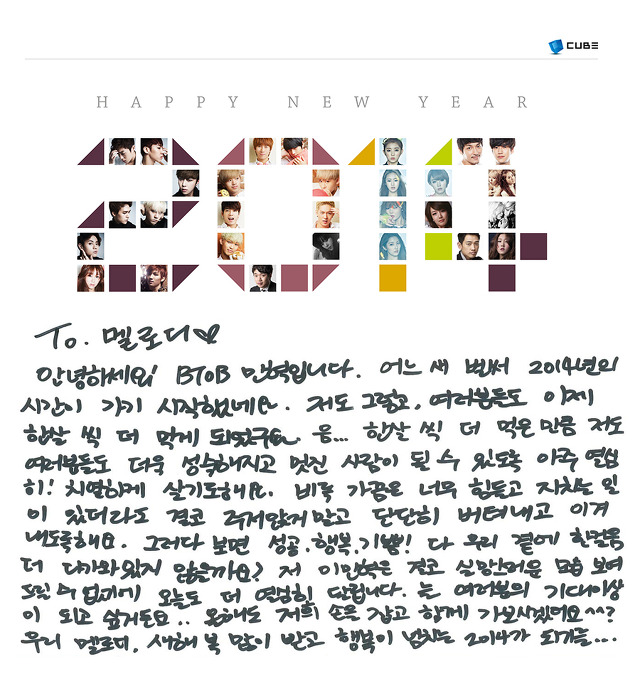 CUBE
HAPPY NEW YEAR
2014
To. 멜로디♡
안녕하세요! BTOB 민혁입니다. 어느 새 벌써 2014년의
시간이 가기 시작했네요. 저도 그렇고, 여러분들도 이제
한살 씩 더 먹게 되었구요. 음... 한살 씩 더 먹은 만큼 저도
여러분들도 더욱 성숙해지고 멋진 사람이 될 수 있도록 아주 열심
히! 치열하게 살기도해요. 비록 가끔은 너무 힘들고 지치는 일
이 있더라도 결코 주저앉게 말고 단단히 버텨내고 이겨
내도록해요. 그러다 보면 성공, 행복, 기쁨! 다 우리 곁에 한걸음
더 다가와있지 않을까요? 저 이민혁은 결코 실망스러운 모습 보여
드릴 수 없기에 오늘도 더 열심히 달립니다. 늘 여러분의 기대이상
이 되고 싶거든요.. 올해도 저희 손을 잡고 함께 가보시겠어요^^?
우리 멜로디, 새해 복 많이 받고 행복이 넘치는 2014가 되기를...